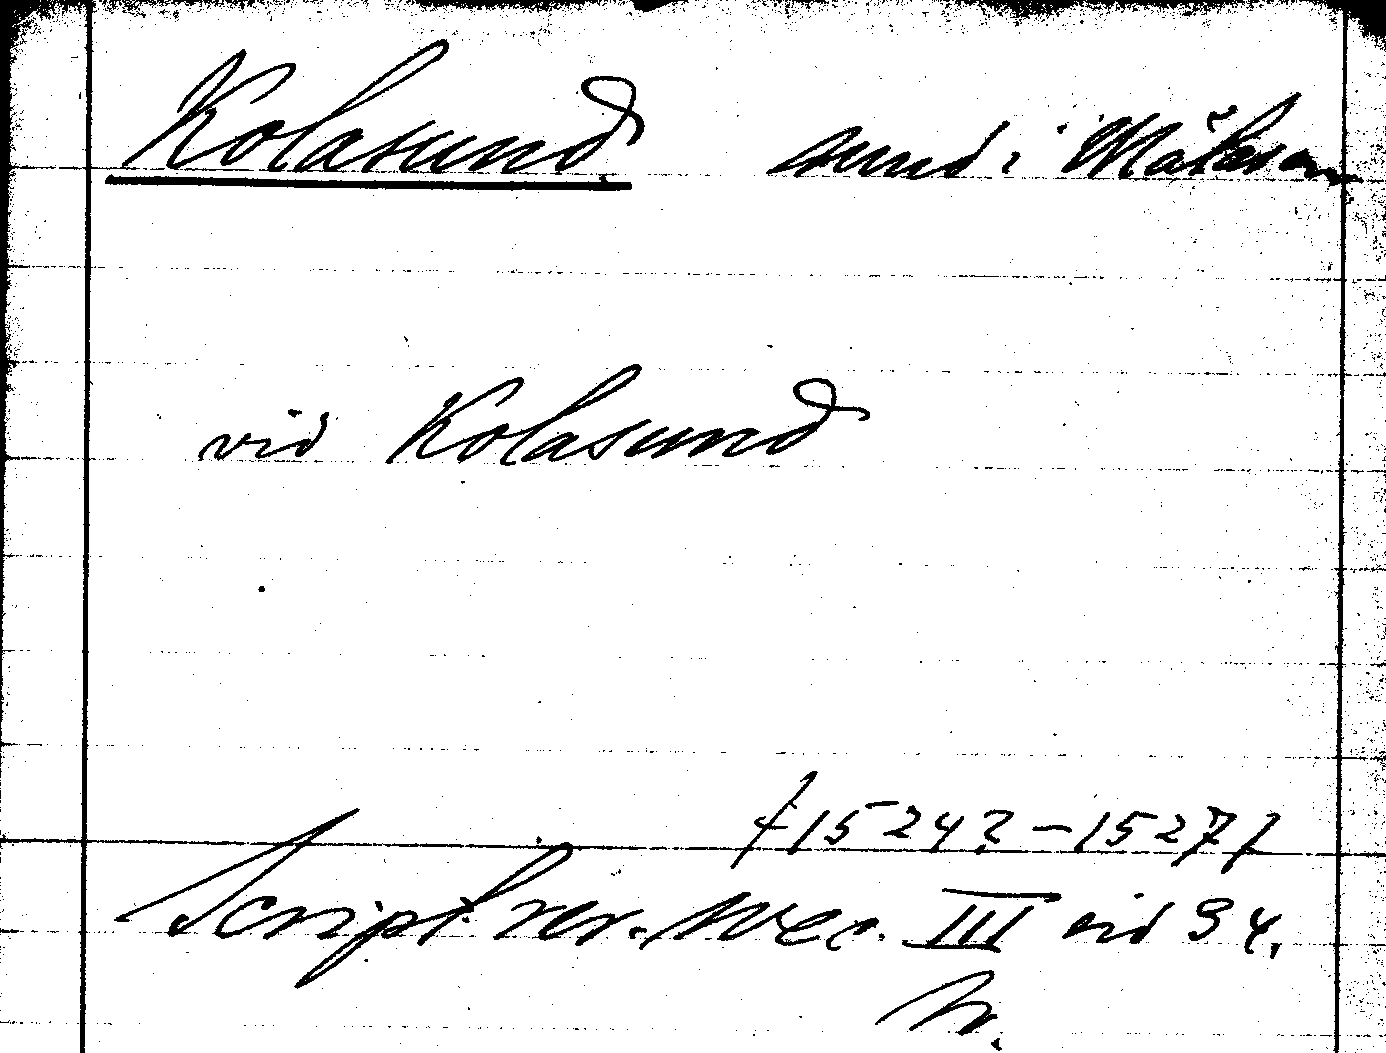 Kolasund. sund i Mälaren
vid Kolasund
[1524? – 1527]
Script. rer. svec. III sid 94.